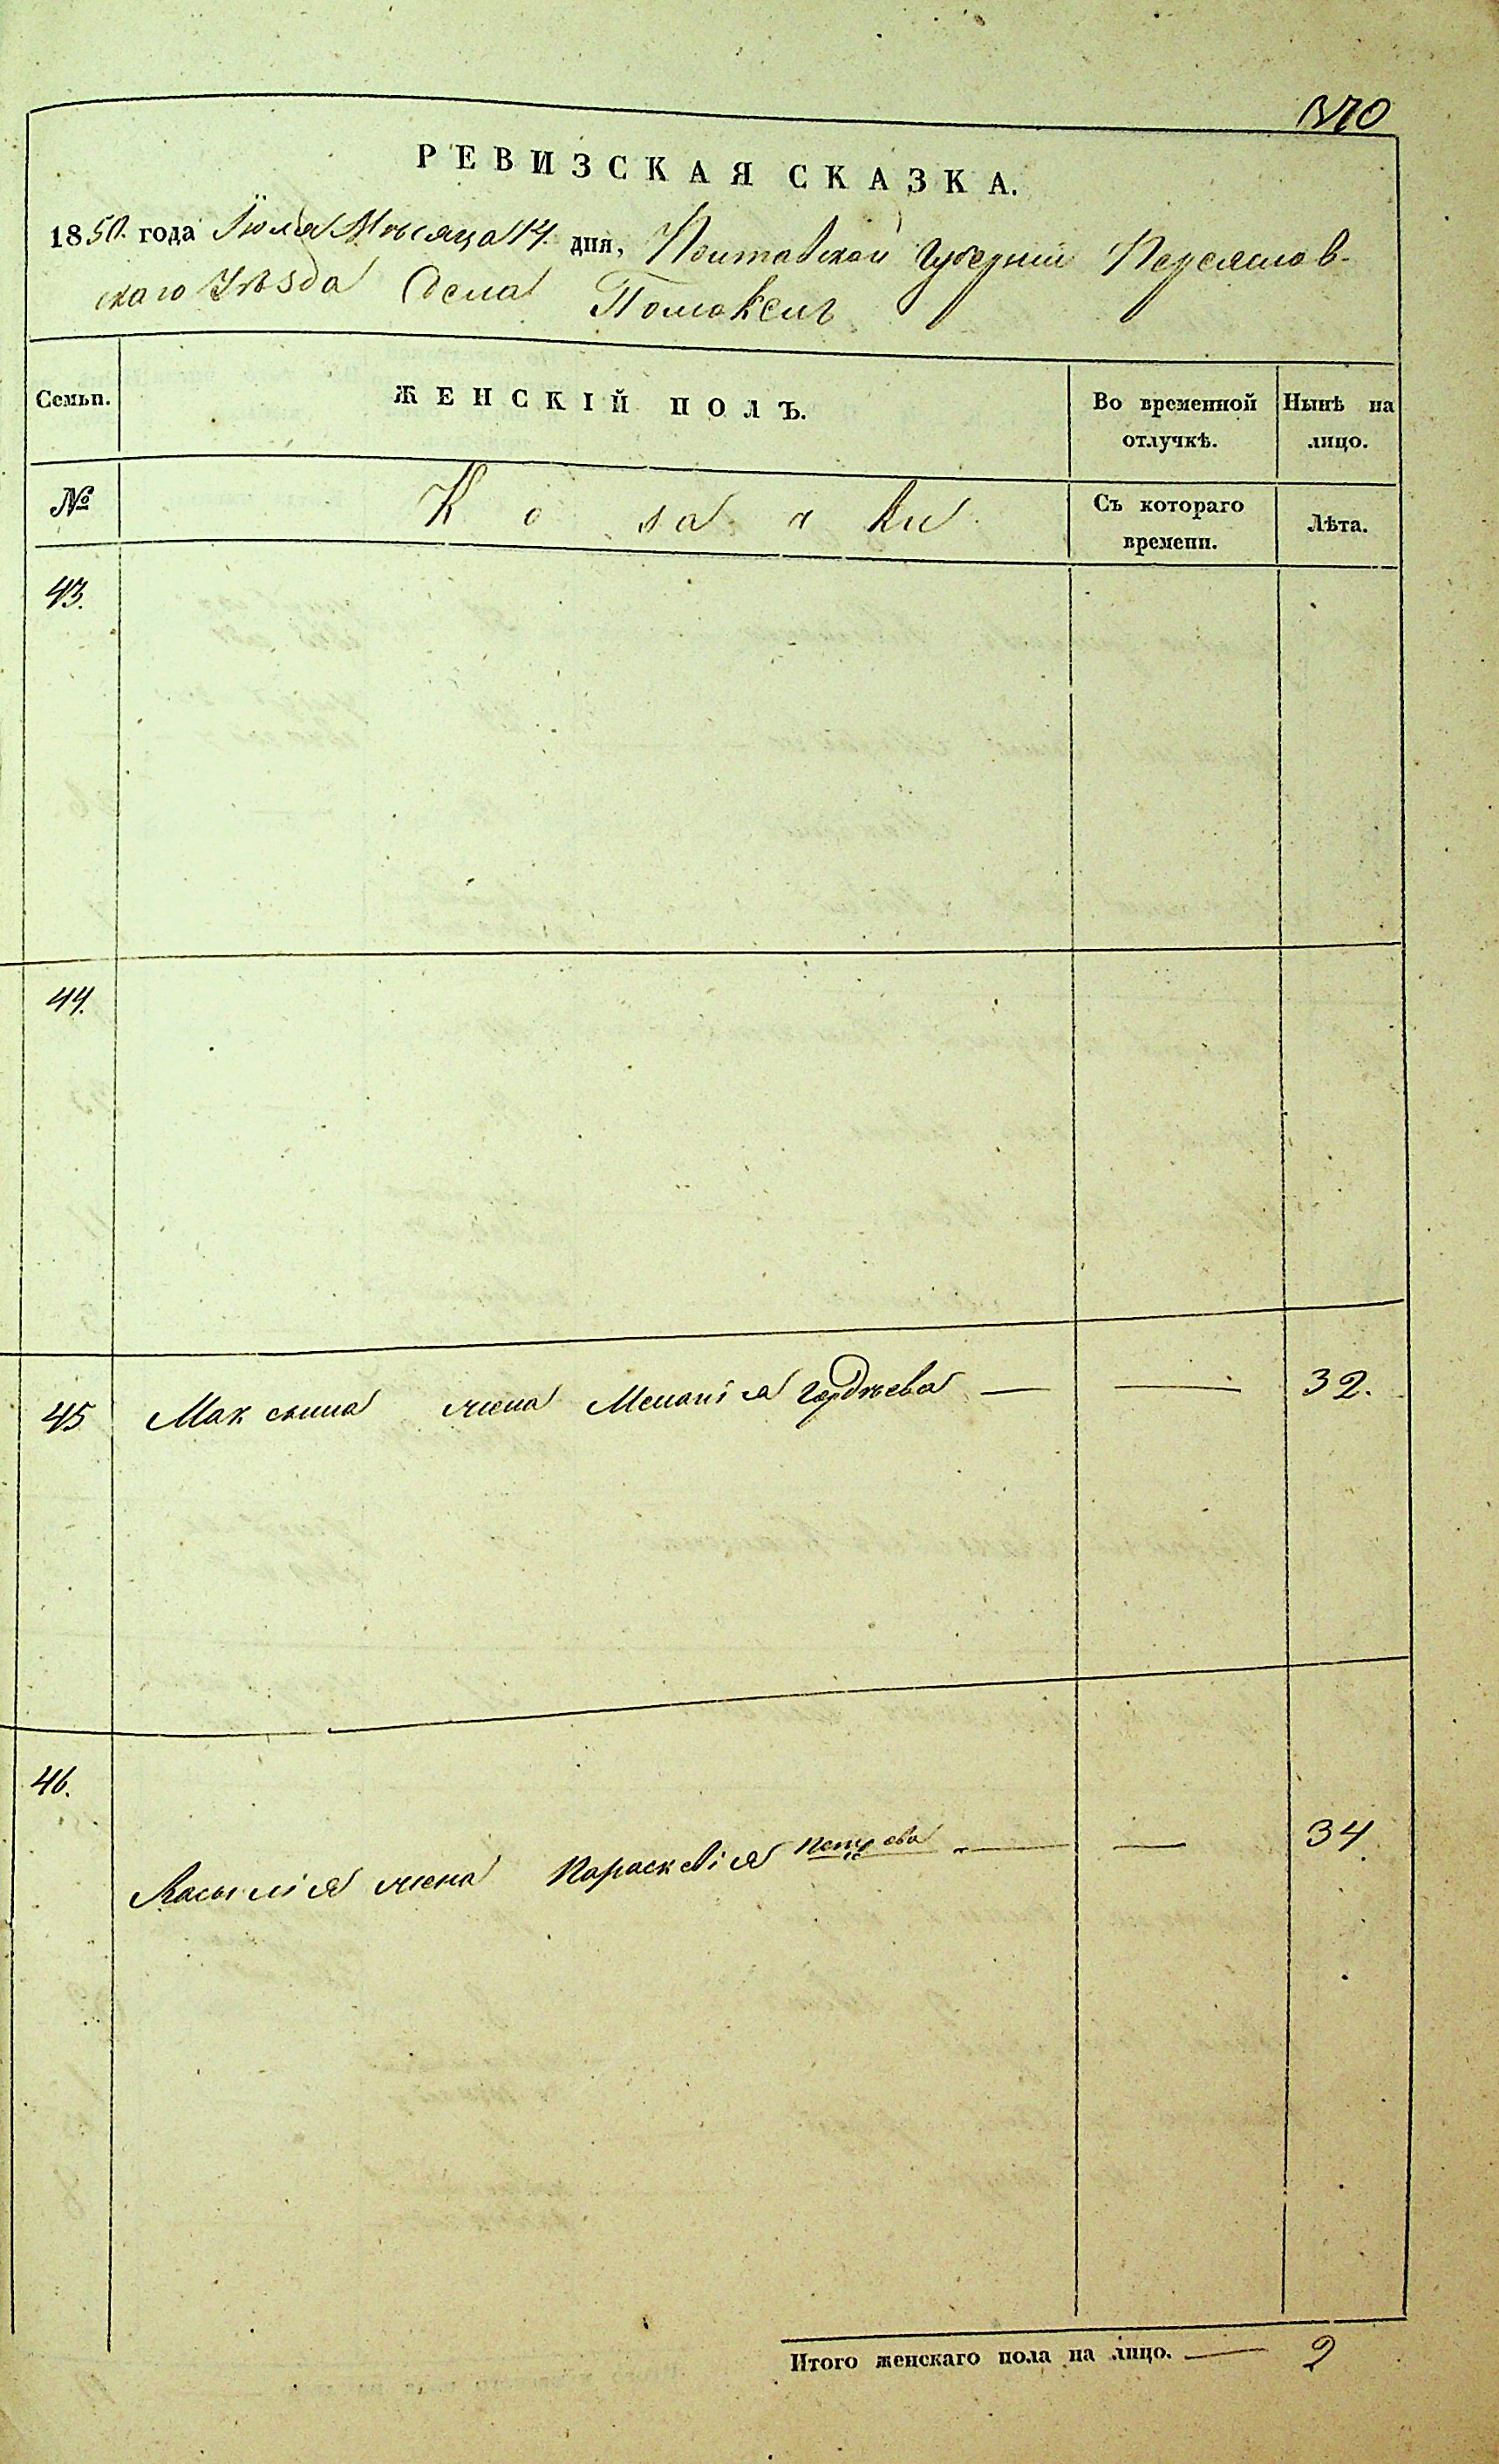 370
РЕВИЗСКАЯ СКАЗКА.
1850. года Іюля Мѣсяца 14. дня, Полтавской Губерніи Переяслов-
скаго Уѣзда Села Помоклъ
Семьи. ЖЕНСКІЙ ПОЛЪ. Во временной отлучкѣ. Нынѣ на лицо.
№ Козаки Съ котораго времени. Лѣта.
43.
44.
45 Максима жена Меланія Гордѣева — — 32.
46.
Василія жена Параскевія Петрова — — 34.
Итого женскаго пола на лицо. — 2